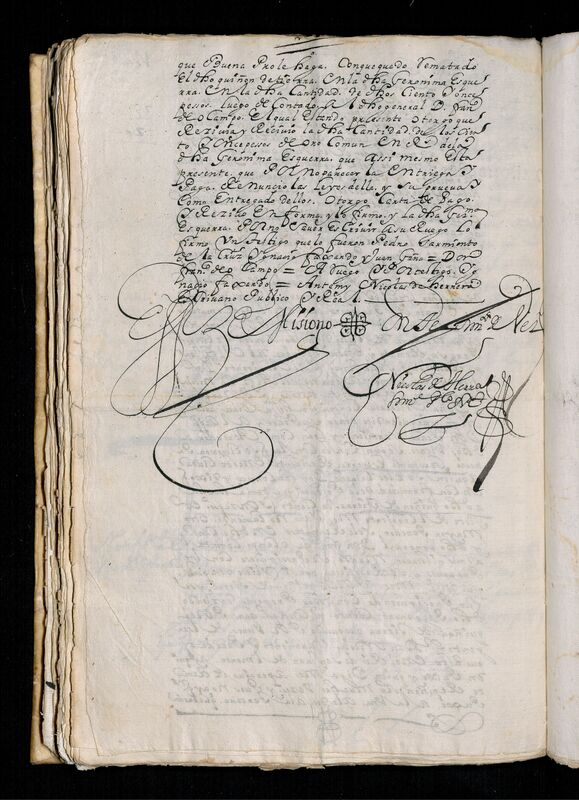 que buena pro le haga. Conque quedo Rematado
El dho quiñon de tierra. En la dha Geronima Esque
rra. En la dha Cantidad. de dhos Ciento y onze
pessos. luego de Contado, dho general D. Fran
de Ocampo. El qual Estando presente Otorgo que
Rezivia y Recivio la dha Cantidad. de los Cien
to y onze pessos de oro Comun En Rs de la
dha Geronima Esguerra. que assi mesmo Esta
presente que Por no pareçer la Entriega y
Paga. Renuncio las Leyes della. y Su prueva
Como Entregado dellos. Otorgo Carta de Pago.
y Reziuo En forma y lo firmo. y La dha Germa
Esguerra. Por no Saver Escrivir a Su Ruego Lo
firmo Un testigo que lo fueron Pedro Sarmiento
de la Cruz Ygnacio faxardo y Juan = Don
Frand. de Ocampo = A Ruego y Por testigo. Yg
nacio faxardo = Antemy Nicolas de Herrera
Escrivano Publico y Real.
Misigno En
Nicolas de Herra